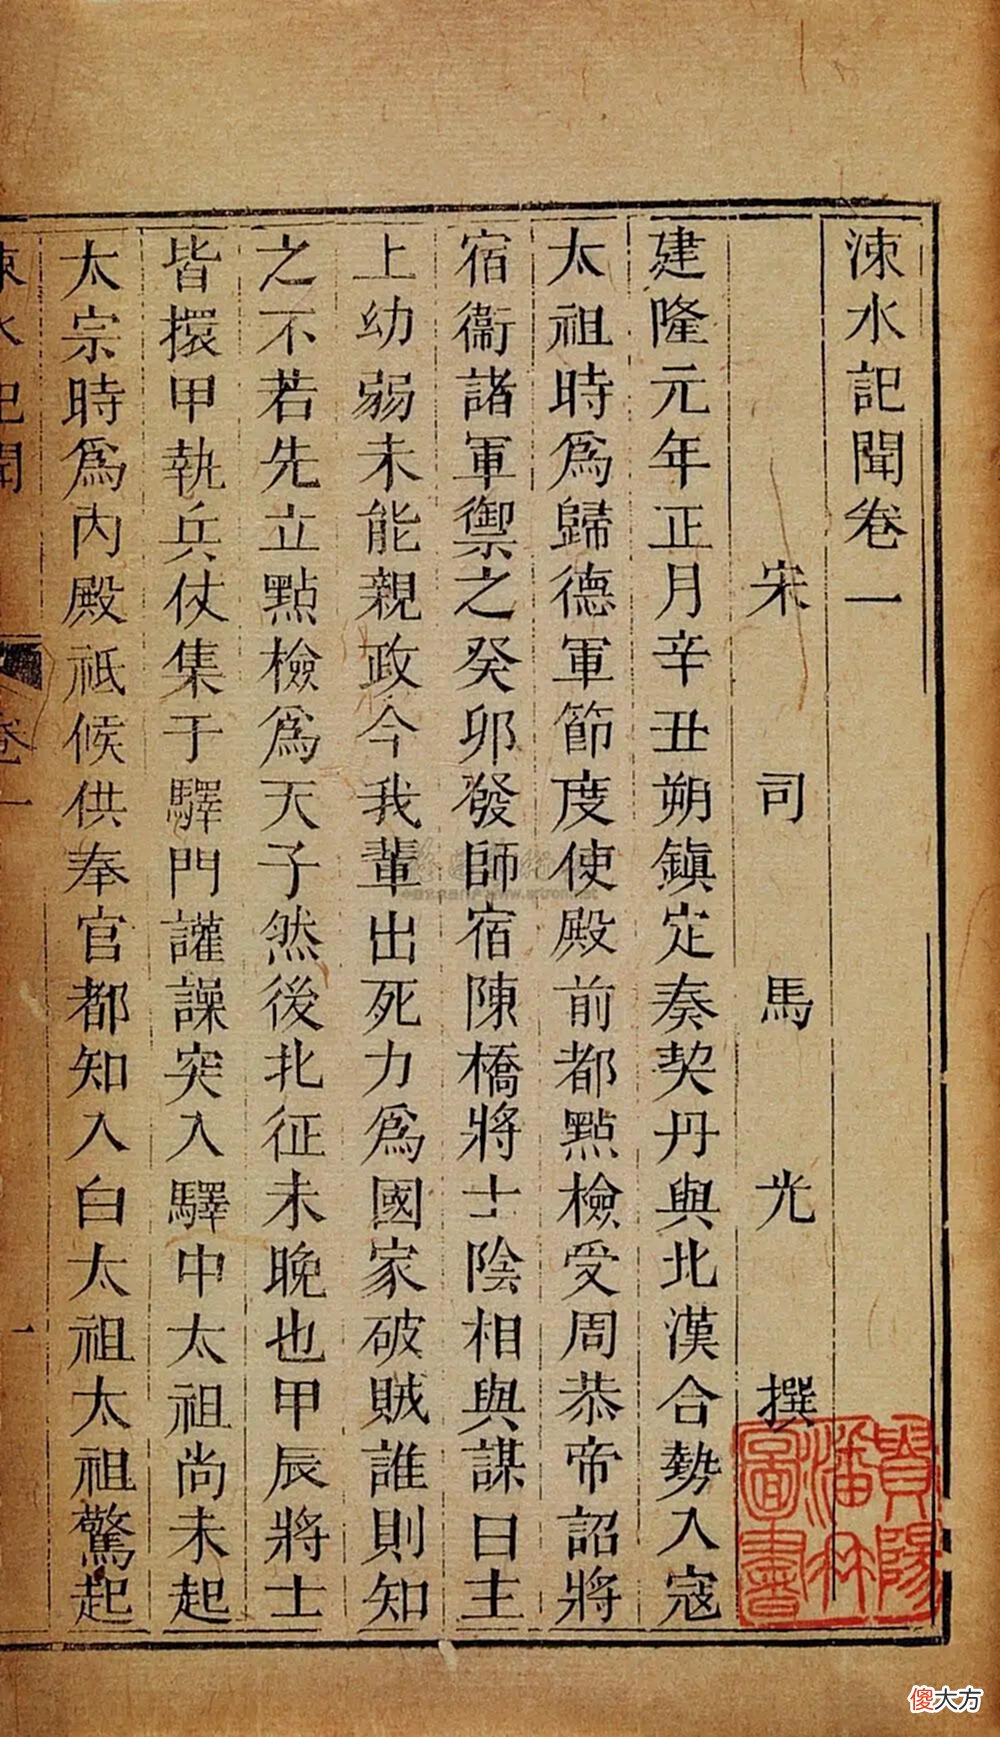 涑水記聞卷一
宋 司 馬 光 撰
建隆元年正月辛丑朔鎮定奏契丹與北漢合勢入寇
太祖時爲歸德軍節度使殿前都點檢受周恭帝詔將
宿衞諸軍禦之癸卯發師宿陳橋將士陰相與謀曰主
上幼弱未能親政今我輩出死力爲國家破賊誰則知
之不若先立點檢爲天子然後北征未晚也甲辰將士
皆擐甲執兵仗集于驛門讙譟突入驛中太祖尚未起
太宗時爲内殿祗候供奉官都知入白太祖太祖驚起
涑水記聞
卷一
一
貴陽
潘
圖書
傻大方